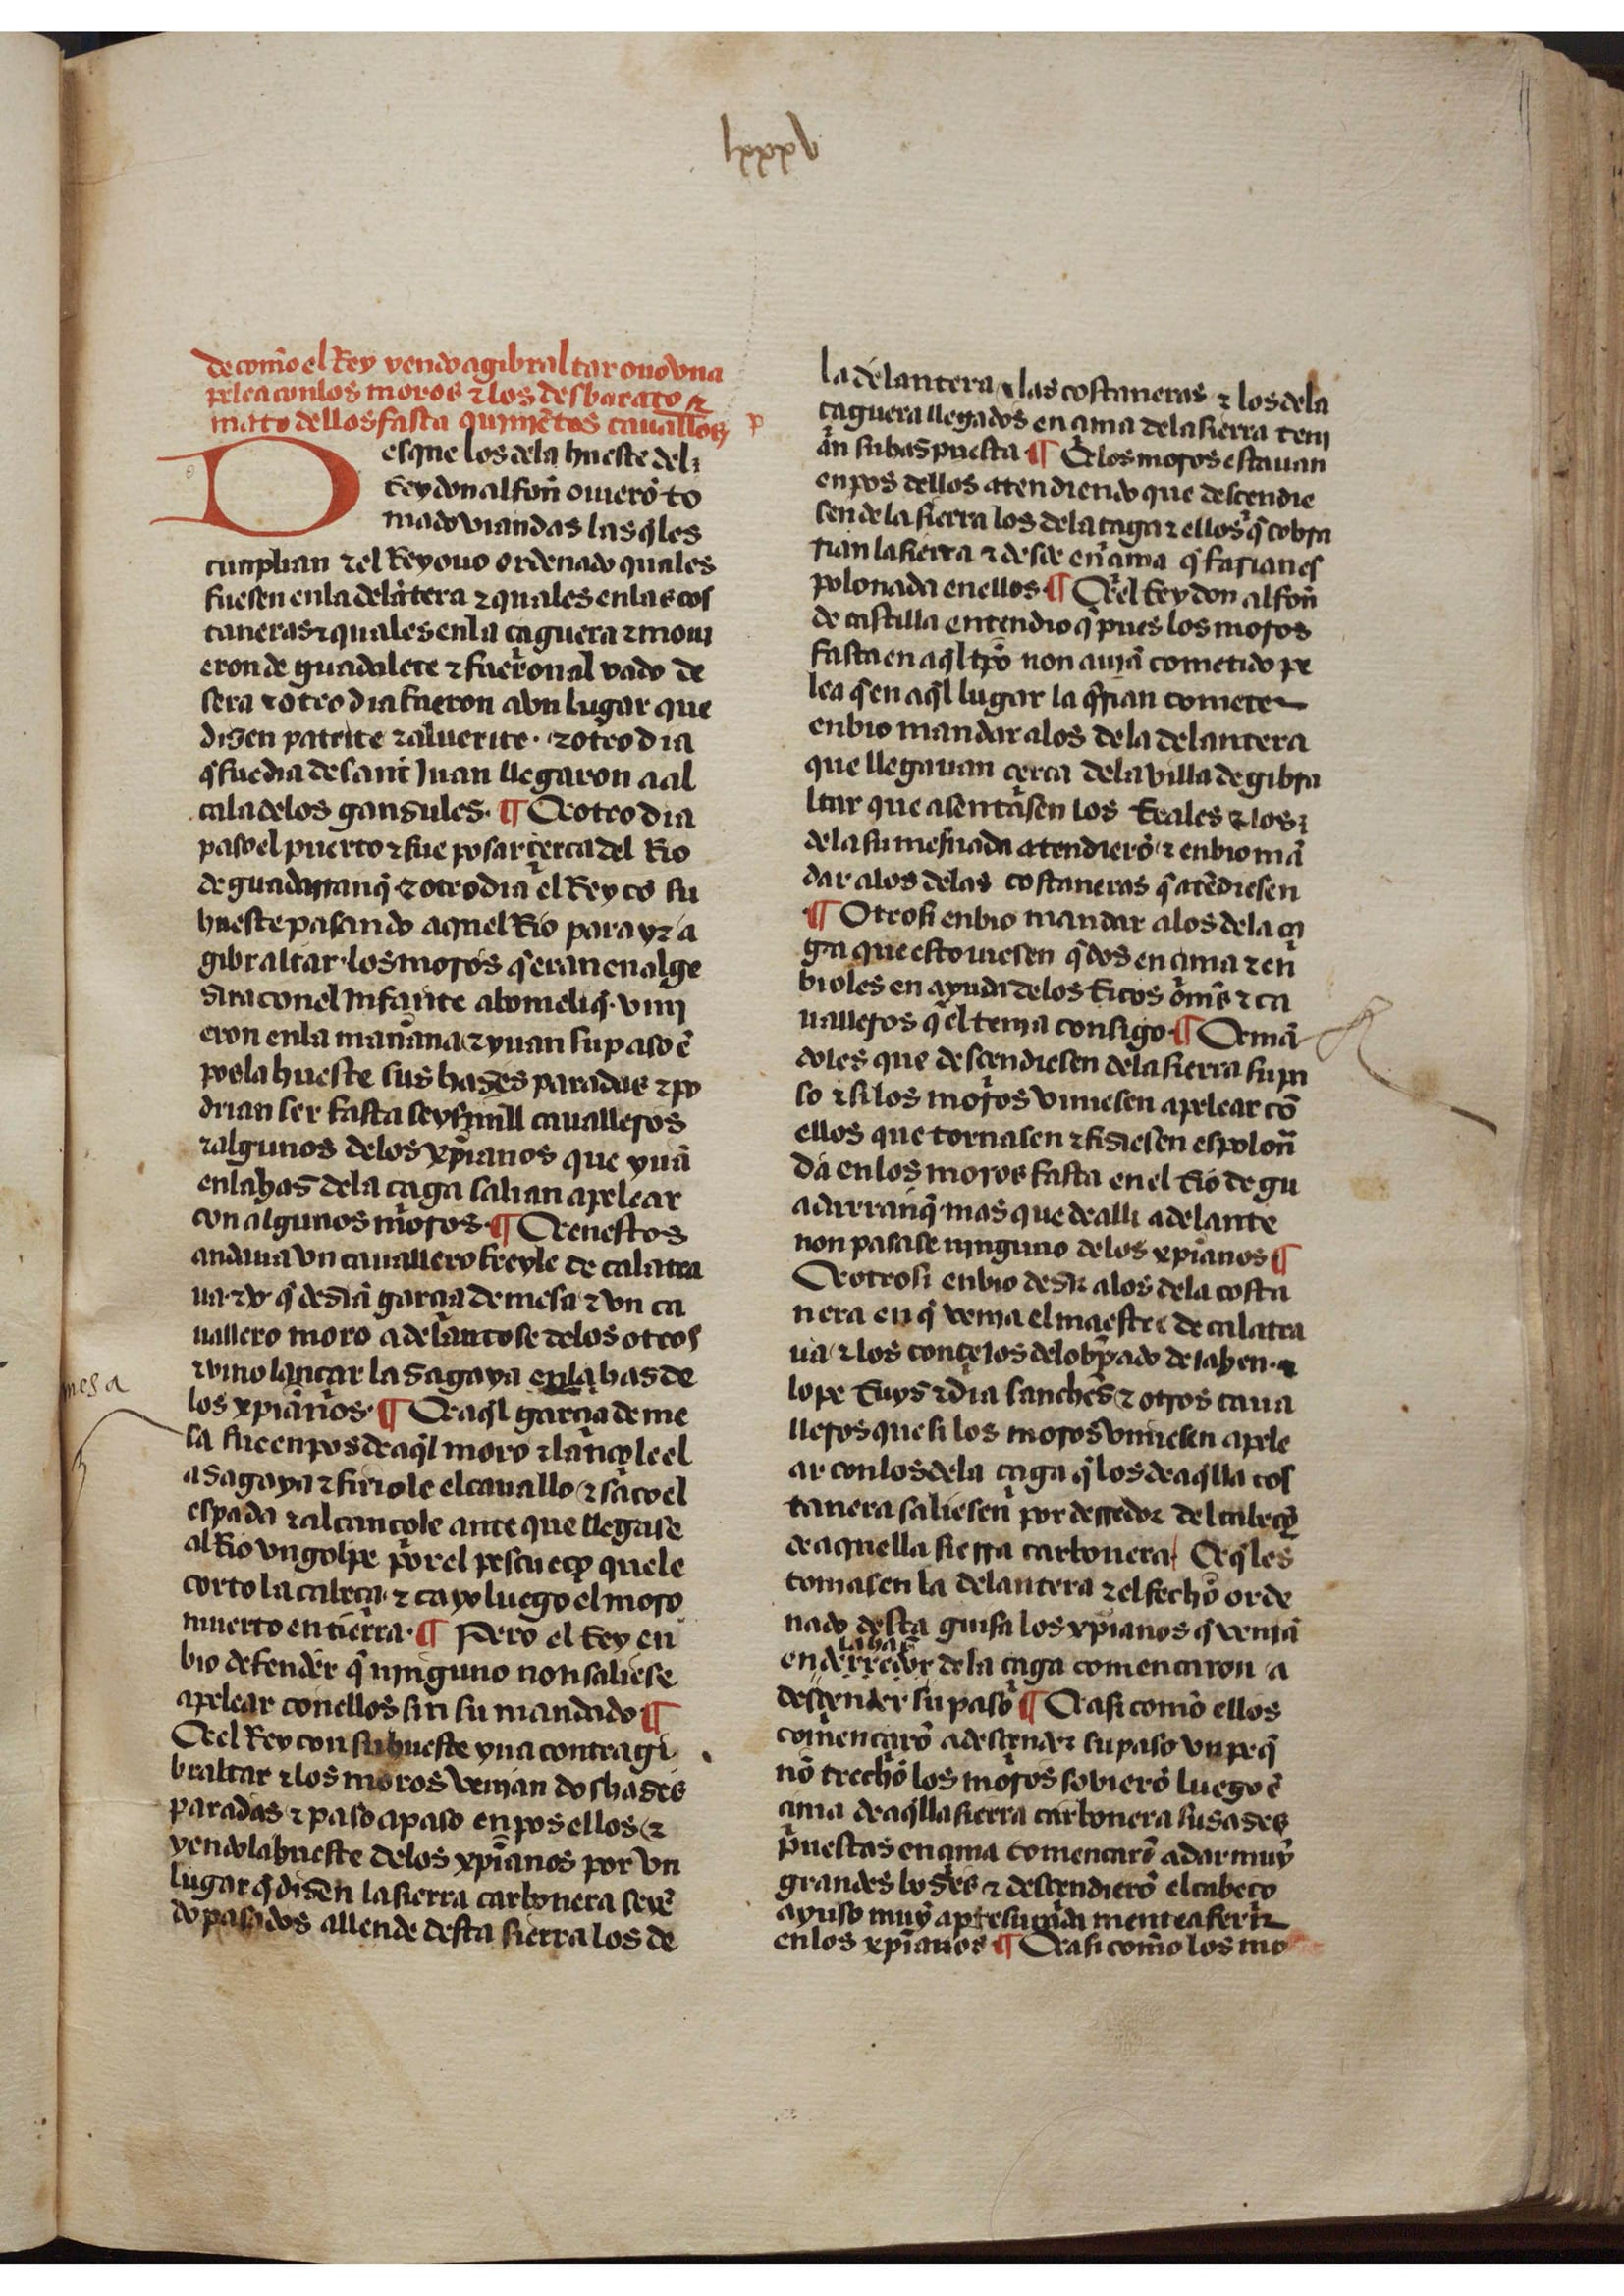 lxxxv
de com̃o el Rey yendo a gibraltar ouo vna
pelea con los moros ⁊ los desbarato ⁊
mato dellos fasta quinjẽtos cauall̃os
Desque los dela hueste del
Rey don alfoñ ouierõ to
mado viandas las q̃les
cunplian ⁊ el Rey ouo ordenado quales
fuesen enla delãtera ⁊ quales enlas cos
taneras ⁊ quales enla çaguera ⁊ moui
eron de guadalete ⁊ fueron al vado de
sera ⁊ otro dia fueron a vn lugar que
disen patrite ⁊ aluerite · ⁊ otro dia
q̃ fue dia de sant Juan llegaron a al
cala delos gansules · ¶ E otro dia
paso el puerto ⁊ fue posar çerca del Rio
de guadarranq̃ ⁊ otro dia el Rey cõ su
hueste pasando aquel Rio para yr a
gibraltar · los moros q̃ eran en alge
sira con el Infante abomeliq̃ · vini
eron enla mañana ⁊ yuan su paso ẽ
pos la hueste sus hases paradas ⁊ po
drian ser fasta seys mill caualleros
⁊ algunos delos xp̃ianos que yuã
enla has dela çaga salian a pelear
con algunos moros · ¶ E en estos
andaua vn cauallero freyle de calatra
ua · ⁊ do q̃ desiã garcia de mesa ⁊ vn ca
uallero moro adelantose delos otros
⁊ vino lançar la sagaya enla has de
los xp̃ianos · ¶ E aq̃l garcia de me
mesa
sa fue en pos de aq̃l moro ⁊ lançole el
asagaya ⁊ firiole el cauallo ⁊ saco el
espada ⁊ alcançole ante que llegase
al Rio vn golpe por el pescueço que le
corto la cabeça · ⁊ cayo luego el moro
muerto en tierra · ¶ Pero el Rey en
bio defender q̃ ninguno non saliese
a pelear con ellos sin su mandado ¶
E el Rey con su hueste yua contra gi
braltar ⁊ los moros venjan dos hases
paradas ⁊ paso a paso en pos ellos ⁊
yendo la hueste delos xp̃ianos por vn
lugar q̃ disen la sierra carbonera seyẽ
do pasados allende desta sierra los de
la delantera ⁊ las costaneras ⁊ los dela
çaguera llegados en çima dela sierra tenj
an su has puesta ¶ E los moros estauan
en pos dellos atendiendo que descendie
sen dela sierra los dela çaga ⁊ ellos q̃ cobra
rian la sierra ⁊ desde ençima q̃ farian es
polonada en ellos · ¶ E el Rey don alfoñ
de castilla entendio q̃ pues los moros
fasta en aq̃l tp̃o non aujã cometido pe
lea q̃ en aq̃l lugar la q̃rian cometer
enbio mandar alos dela delantera
que llegauan çerca dela villa de gibra
ltar que asentasen los Reales ⁊ los
dela su mesnada atendierõ ⁊ enbio mã
dar alos delas costaneras q̃ atẽdiesen
¶ Otrosi enbio mandar alos dela ça
ga que estouiesen q̃dos en çima ⁊ en
bioles en ayuda delos Ricos õmẽs ⁊ ca
ualleros q̃ el tenja consigo · ¶ E mã
doles que descendiesen dela sierra su pa
so ⁊ si los moros viniesen a pelear cõ
ellos que tornasen ⁊ fisiesen espolona
da en los moros fasta en el Rio de gu
adarranq̃ · mas que de alli adelante
non pasase ninguno delos xp̃ianos ¶
E otrosi enbio desir alos dela costa
nera en q̃ venja el maestre de calatra
ua ⁊ los conçejos del obp̃ado de iahen ·
lope Ruys ⁊ dia sanches ⁊ otros caua
lleros que si los moros viniesen a pele
ar con los dela çaga q̃ los de aq̃lla cos
tanera saliesen por derredor del cabeço
de aquella sierra carbonera E q̃ les
tomasen la delantera ⁊ el fecho orde
nado desta guisa los xp̃ianos q̃ venjã
la has
en derredor dela çaga comencaron a
descender su paso ¶ E asi com̃o ellos
començarõ a descender su paso vn peq̃
nõ trecho los moros sobierõ luego ẽ
çima de aq̃lla sierra carbonera sus ases
puestas en çima comencarõ a dar muy
grandes boses ⁊ descendierõ el cabeço
ayuso muy apresurada mente a ferir
en los xp̃ianos ¶ E asi com̃o los mo